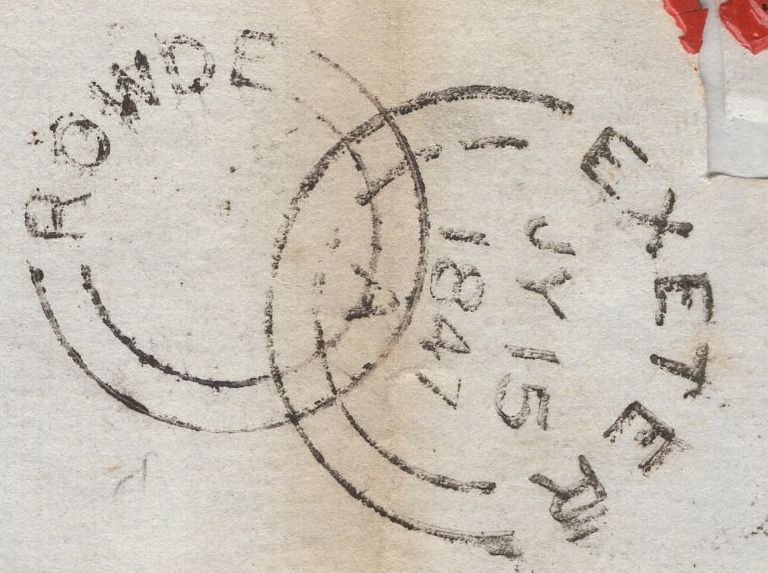 ROWDE
EXETER
JY 15
1847
A